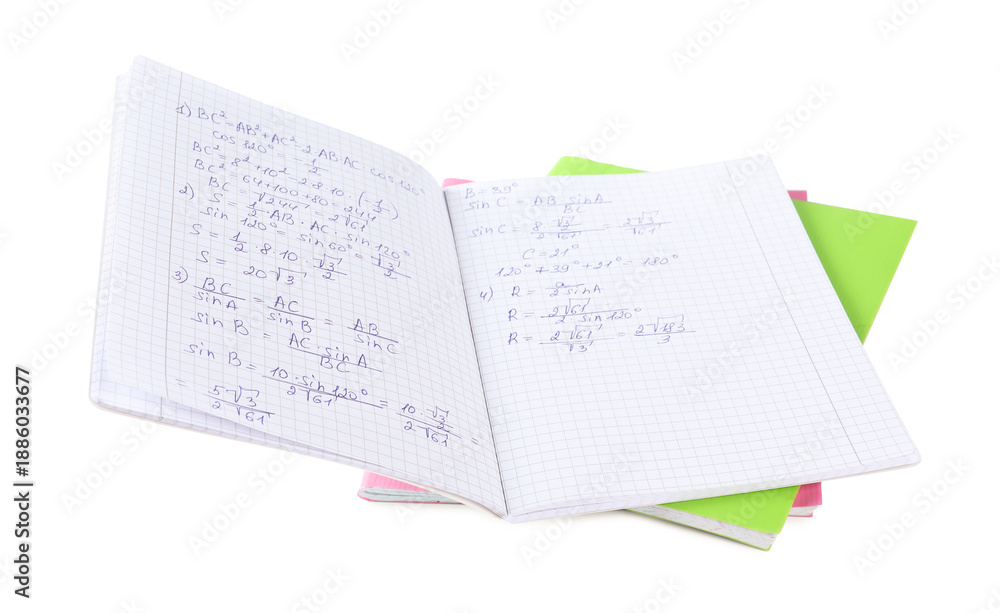 1) BC² = AB² + AC² - 2·AB·AC·cos 120°
cos 120° = -1/2
BC² = 8² + 10² - 2·8·10·(-1/2)
BC² = 64+100+80 = 244
BC = √244 = 2√61
2) S = 1/2·AB·AC·sin 120°
sin 120° = sin 60° = √3/2
S = 1/2·8·10·√3/2
S = 20√3
3) BC/sinA = AC/sinB = AB/sinC
sin B = AC·sinA/BC
sin B = 10·sin120°/2√61 = 10·√3/2/2√61 =
= 5√3/2√61
B = 39°
sin C = AB sinA/BC
sin C = 8 √3/2/2√61 = 2√3/√61
C = 21°
120° + 39° + 21° = 180°
4) R = a/2 sinA
R = 2√61/2 sin120°
R = 2√61/√3 = 2√183/3
Adobe Stock | #1886033677